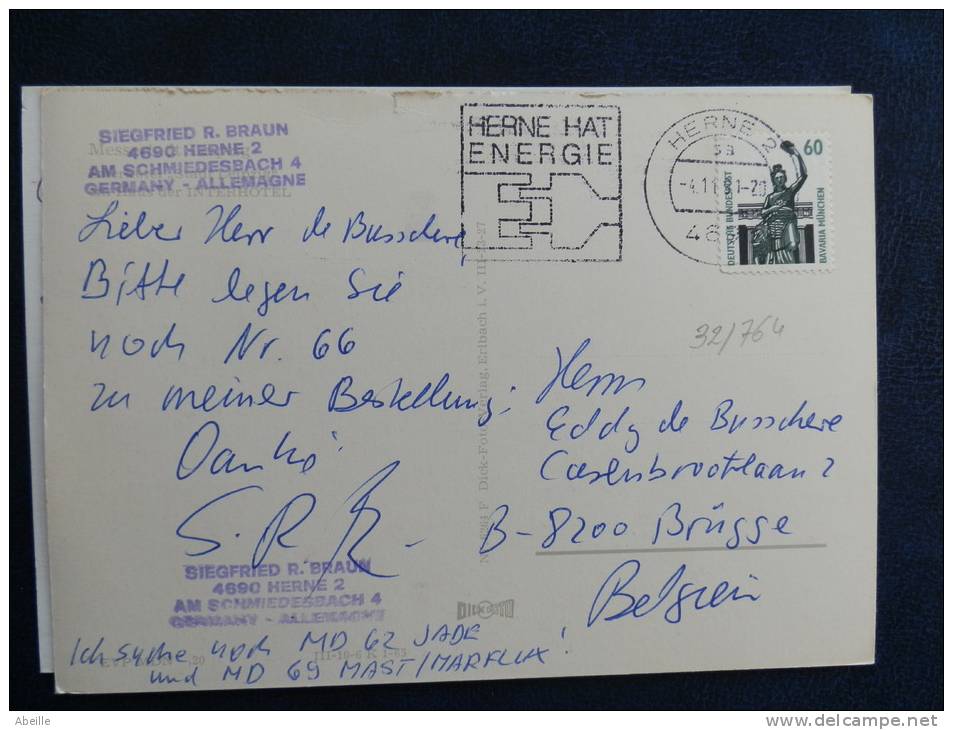 SIEGFRIED R. BRAUN
4690 HERNE 2
AM SCHMIEDESBACH 4
GERMANY - ALLEMAGNE
INTERHOTEL
HERNE HAT
ENERGIE
HERNE 2
60
DEUTSCHE BUNDESPOST
BAVARIA MÜNCHEN
Lieber Herr de Busschere,
Bitte legen Sie
noch Nr. 66
zu meiner Bestellung.
Danke
S. R.
32/764
Herrn
Eddy de Busschere
B-8200 Brügge
Belgien
Dick-Foto-Verlag, Erlbach i. V.
SIEGFRIED R. BRAUN
4690 HERNE 2
AM SCHMIEDESBACH 4
GERMANY - ALLEMAGNE
Ich suche noch MD 62 JADE
und MD 69 MAST/MARFLUX!
Abeille
www.delcampe.net